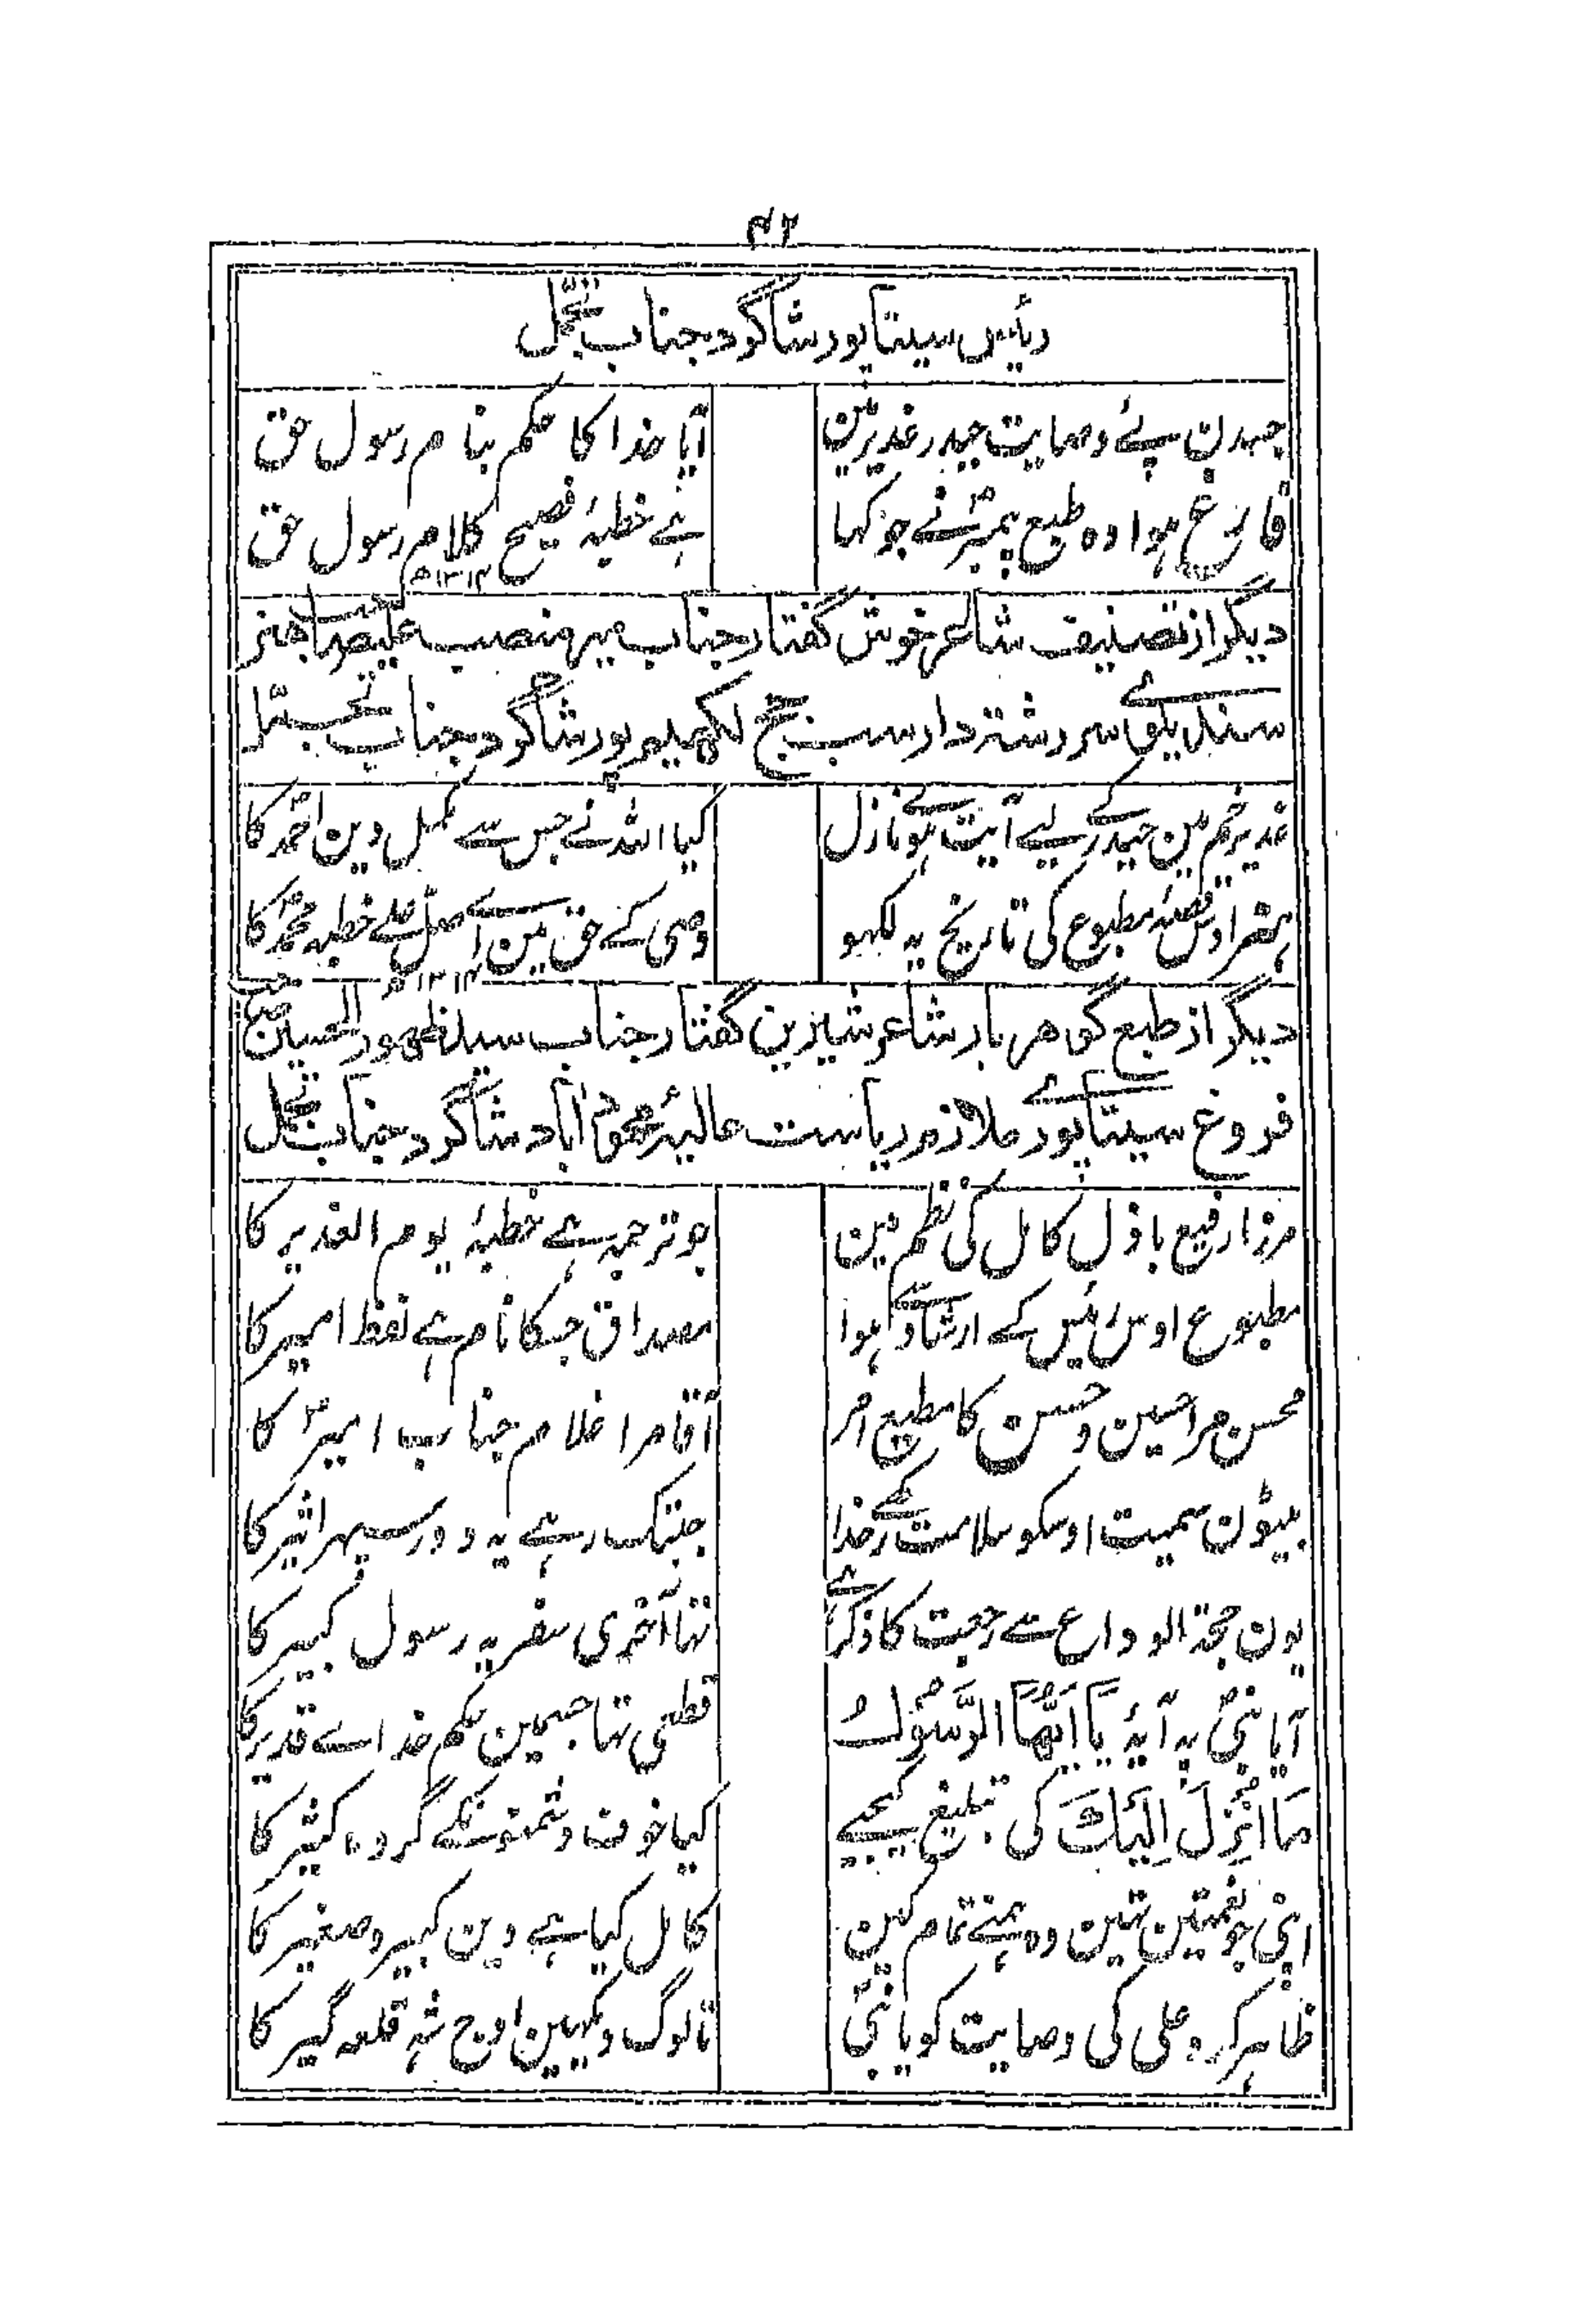 ۴۲
رئیس سیتاپور شاگرد جناب تجمل
جسدن پئے وصایت حیدر غدیر مین
آیا خدا کا حکم بنام رسول حق
فارغ ہوا وہ طبع پیمبر نے جو کہا
ہے خطبۂ فصیح کلام رسول حق
۱۳۱۴ھ
دیگر از تصنیف شاعر خوش گفتار جناب میر منصب علیصاحب ہنر
سندیلوی سررشتہ دار سب جج لکھیم پور شاگرد جناب تجمل
غدیر خم مین حیدر کے لیے آیت ہوئی نازل
کیا اللہ نے جس سے مکمل دین احمد کا
ہنر اوس قصۂ مطبوع کی تاریخ یہ لکھو
وصی کے حق مین ہے اصل علے خطبہ محمد کا
۱۳۱۴ھ
دیگر از طبع گوہر بار شاعر شیرین گفتار جناب سید ظہور الحسین صاحب
فروغ سیتاپوری ملازم ریاست عالیۂ محمود آباد شاگرد جناب تجمل
مرزا رفیع باذل کامل کی نظم مین
جو ترجمہ ہے خطبۂ یوم الغدیر کا
مطبوع اوس رئیس کے ارشاد سے ہوا
مصداق جسکا نام ہے لفظ امیر کا
محسن مرا حسین و حسن کا مطیع امر
آقا مرا غلام جناب امیرؑ کا
بیٹون سمیت اوسکو سلامت رکھے خدا
جبتک رہے یہ دور سپہر اثیر کا
یون حجۃ الوداع سے رجعت کا ذکر ہے
تھا آخری سفر یہ رسول کبیر کا
آیا نبیؐ پہ آیۂ یَا اَیُّهَا الرَّسُوْلُ
قطعی تھا جسمین حکم خداے قدیر کا
مَا اُنْزِلَ اِلَیْكَ کی تبلیغ کیجیے
کیا خوف دشمنونکے گروہ کثیر کا
اپنی جو نعمتین تھین وہ ہمنے تمام کین
کامل کیا ہے دین کبیر و صغیر کا
ظاہر کرو علی کی وصایت کو یا نبیؐ
تا لوگ دیکھین اوج شہ قلعہ گیر کا